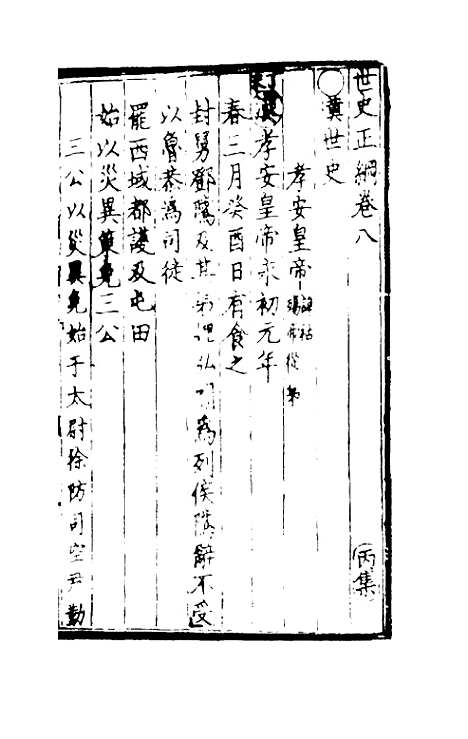 世史正綱卷八　　丙集
○漢世史
孝安皇帝諱祜殤帝從弟
漢孝安皇帝永初元年
春三月癸酉日有食之
封舅鄧騭及其弟悝弘閶爲列侯騭辭不受
以魯恭爲司徒
罷西域都護及屯田
始以災異策免三公
三公以災異免始于太尉徐防司空尹勤